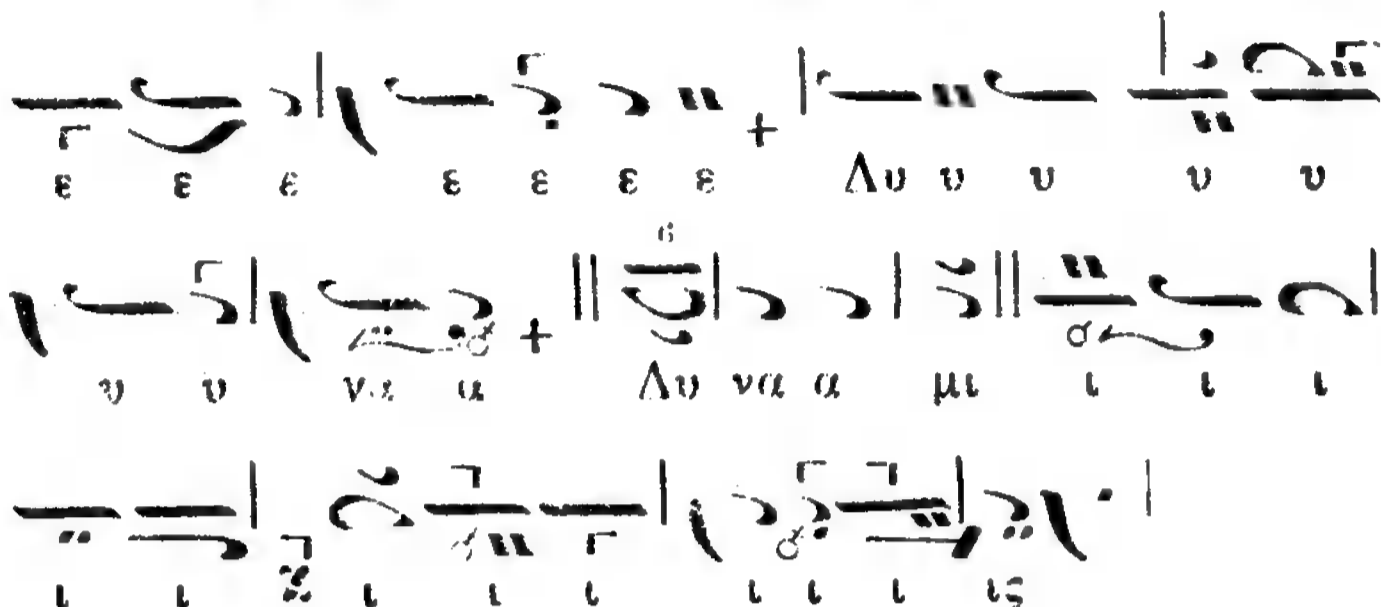 ε ε ε ε ε ε ε Δυ υ υ υ υ
υ υ να α Δυ να α μι ι ι ι
ι ι ι ι ι ι ι ι ις